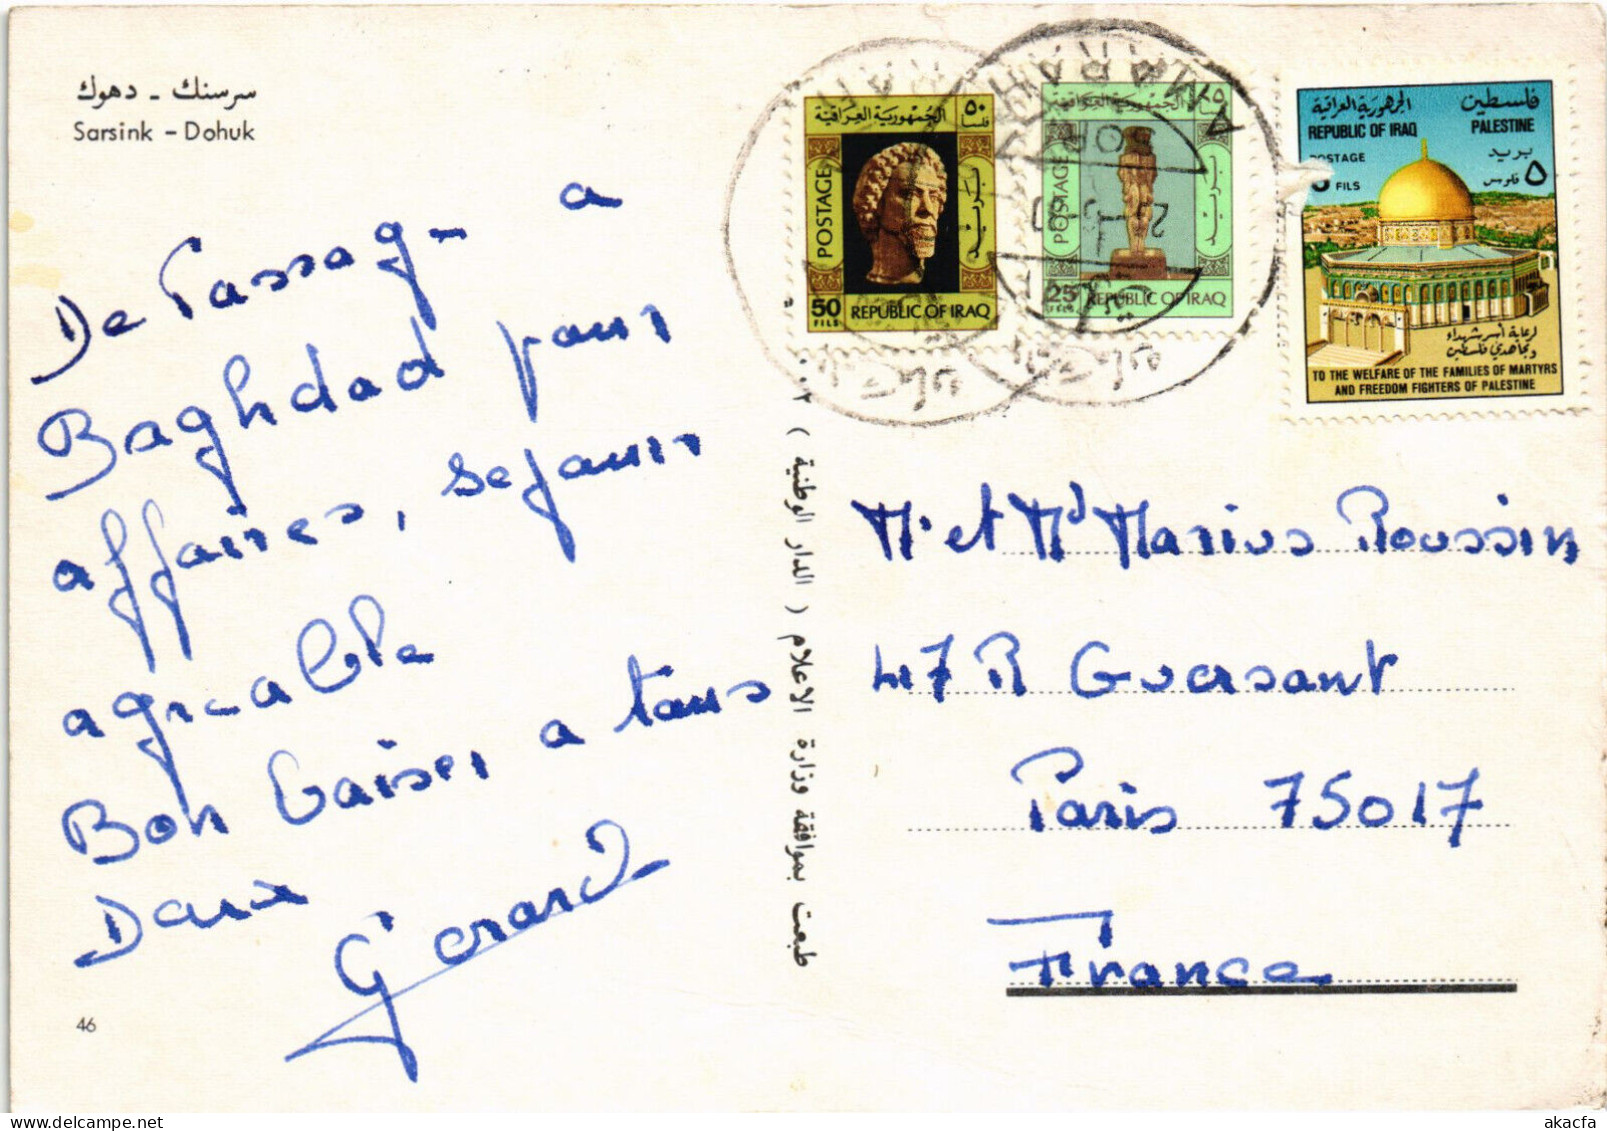 سرسنك - دهوك
Sarsink - Dohuk
De Passage a
Baghdad pour
affaires, sejour
agreable
Bon baiser a tous
Deux
Gerard
46
طبعت بموافقة وزارة الاعلام ( الدار الوطنية )
AMARAH
٥٠
فلسا
الجمهورية العراقية
POSTAGE
بريد
50
FILS
REPUBLIC OF IRAQ
الجمهورية العراقية
POSTAGE
بريد
25
FILS
REPUBLIC OF IRAQ
الجمهورية العراقية
فلسطين
REPUBLIC OF IRAQ
PALESTINE
POSTAGE
5 FILS
بريد
٥ فلوس
لرعاية أسر شهداء
ومجاهدي فلسطين
TO THE WELFARE OF THE FAMILIES OF MARTYRS
AND FREEDOM FIGHTERS OF PALESTINE
M. et Md Marius Roussin
47 R Guersant
Paris 75017
France
akacfa